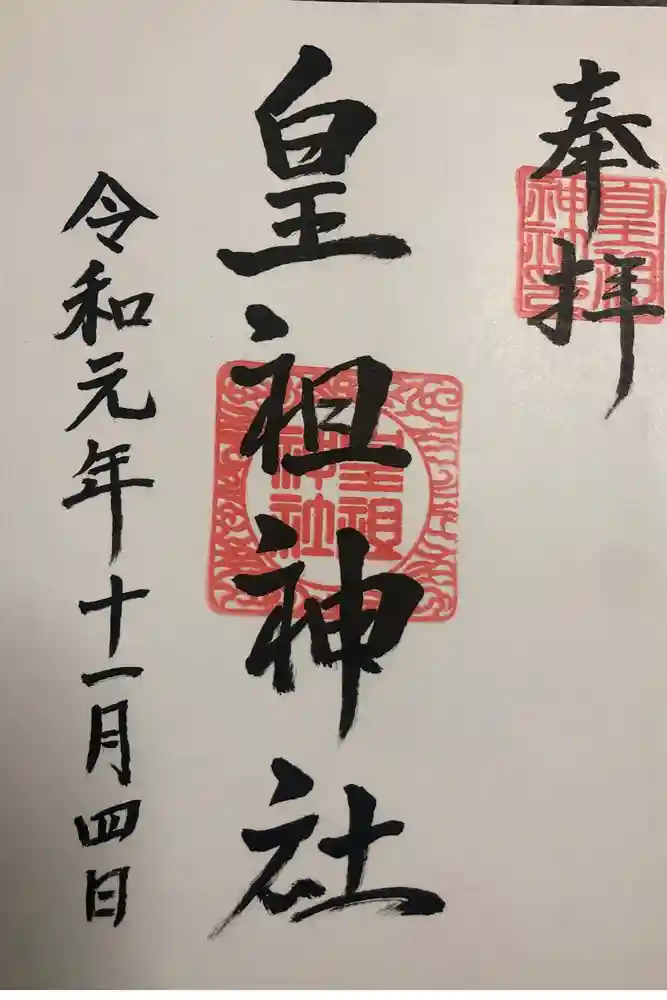 奉拝
皇祖神社
皇祖
神社
令和元年十一月四日